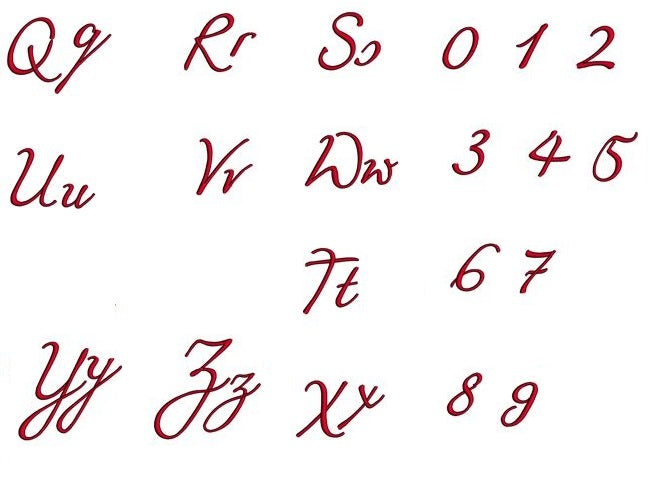 Qq Rr Ss 0 1 2
Uu Vv Ww 3 4 5
Tt 6 7
Yy Zz Xx 8 9